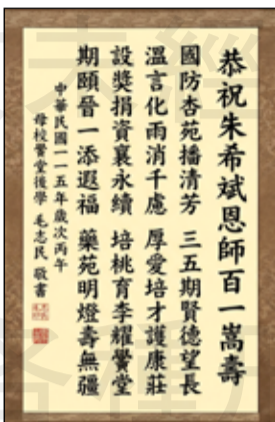 恭祝朱希斌恩師百一嵩壽
國防杏苑播清芳 三五期賢德望長
溫言化雨消千慮 厚愛培才護康莊
設獎捐資襄永續 培桃育李耀黌堂
期頤晉一添遐福 藥苑明燈壽無疆
中華民國一一五年歲次丙午
母校黌堂後學 毛志民 敬書